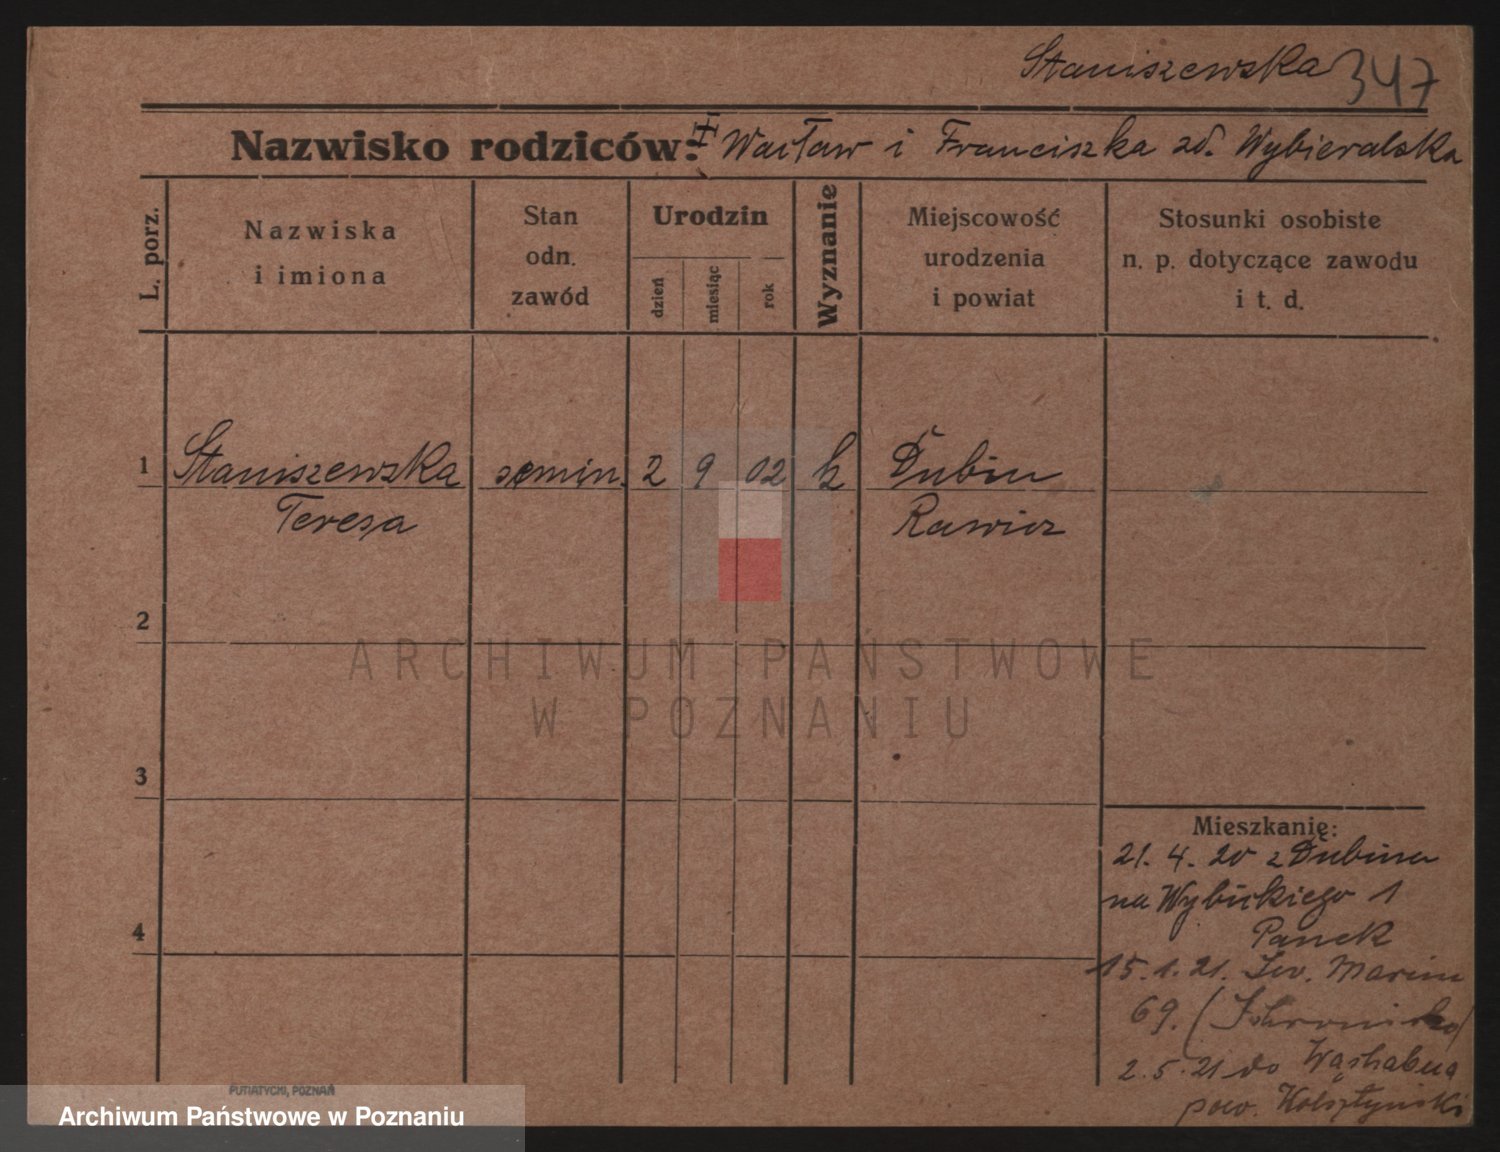 Staniszewska 347
Nazwisko rodziców: ‡ Wacław i Franciszka zd. Wybieralska
L. porz.
Nazwiska
i imiona
Stan
odn.
zawód
Urodzin
dzień
miesiąc
rok
Wyznanie
Miejscowość
urodzenia
i powiat
Stosunki osobiste
n. p. dotyczące zawodu
i t. d.
1 Staniszewska semin. 2 9 02 k Dubin
Teresa Rawicz
2
3
4
Mieszkanię:
21. 4. 20 z Dubina
na Wybickiego 1
Panek
15. 1. 21. Św. Marcin
69. (Schronisko)
2. 5. 21 do
pow.
PUTIATYCKI, POZNAŃ
ARCHIWUM PAŃSTWOWE
W POZNANIU
Archiwum Państwowe w Poznaniu